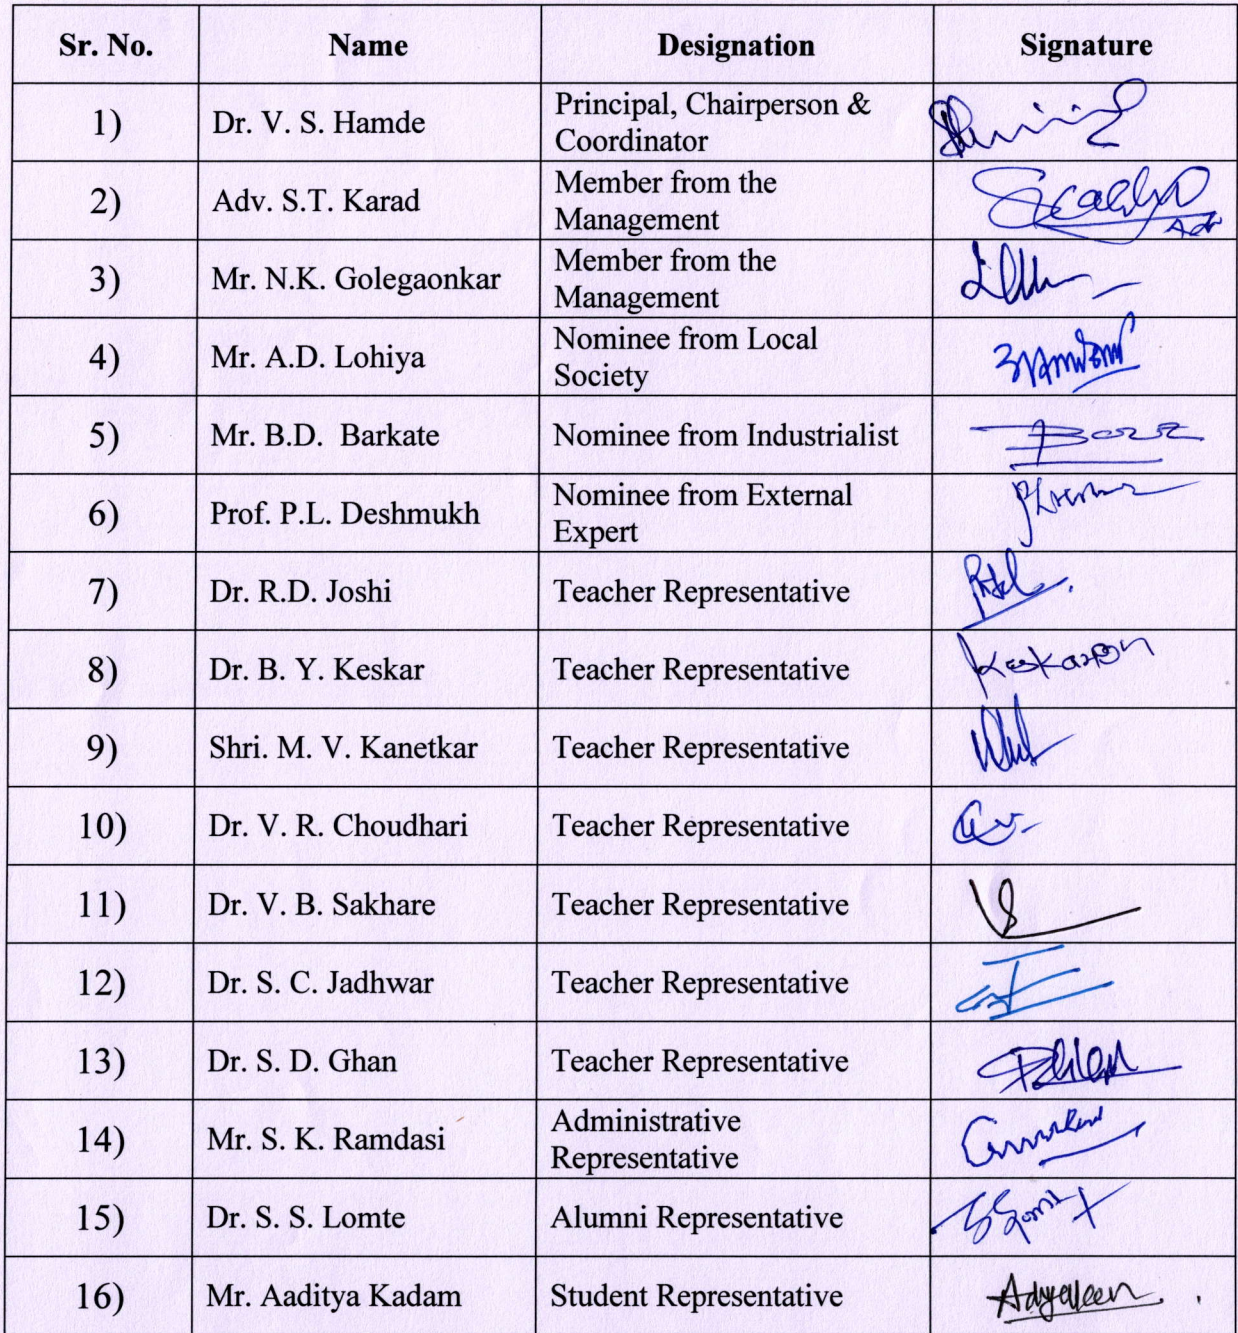 Sr. No. Name Designation Signature
1) Dr. V. S. Hamde Principal, Chairperson &
Coordinator
2) Adv. S.T. Karad Member from the
Management
3) Mr. N.K. Golegaonkar Member from the
Management
4) Mr. A.D. Lohiya Nominee from Local
Society
5) Mr. B.D. Barkate Nominee from Industrialist
6) Prof. P.L. Deshmukh Nominee from External
Expert
7) Dr. R.D. Joshi Teacher Representative
8) Dr. B. Y. Keskar Teacher Representative
9) Shri. M. V. Kanetkar Teacher Representative
10) Dr. V. R. Choudhari Teacher Representative
11) Dr. V. B. Sakhare Teacher Representative
12) Dr. S. C. Jadhwar Teacher Representative
13) Dr. S. D. Ghan Teacher Representative
14) Mr. S. K. Ramdasi Administrative
Representative
15) Dr. S. S. Lomte Alumni Representative
16) Mr. Aaditya Kadam Student Representative